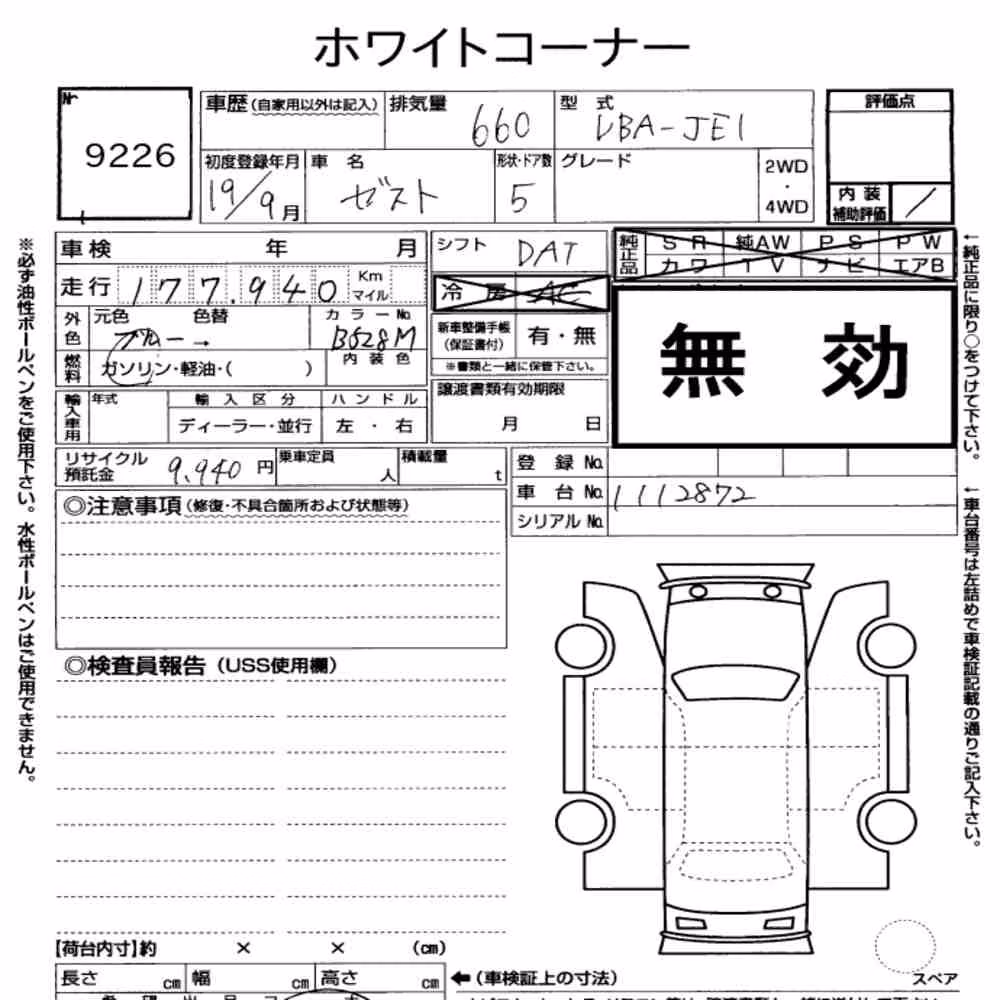 ホワイトコーナー
Nr
9226
車歴(自家用以外は記入)
排気量
660
型式
DBA-JE1
評価点
初度登録年月
19/9月
車名
ゼスト
形状・ドア数
5
グレード
2WD
・
4WD
内装
補助評価
/
車検 年 月
シフト
DAT
純正品
SR 純AW PS PW
カワ TV ナビ エアB
走行 177,940 Km マイル
冷房 AC
無効
外色
元色 色替
ブルー →
カラーNo
B528M
新車整備手帳
(保証書付)
有・無
燃料
ガソリン・軽油・( )
内装色
※書類と一緒に保管下さい。
輸入車用
年式
輸入区分
ハンドル
ディーラー・並行
左・右
譲渡書類有効期限
月 日
リサイクル
預託金
9,940円
乗車定員
人
積載量
t
登録No.
車台No. 1112872
シリアルNo.
◎注意事項(修復・不具合箇所および状態等)
◎検査員報告(USS使用欄)
※必ず油性ボールペンをご使用下さい。水性ボールペンはご使用できません。
←純正品に限り○をつけて下さい。
←車台番号は左詰めで車検証記載の通りご記入下さい。
【荷台内寸】約 × × (cm)
長さ cm 幅 cm 高さ cm
←(車検証上の寸法)
スペア